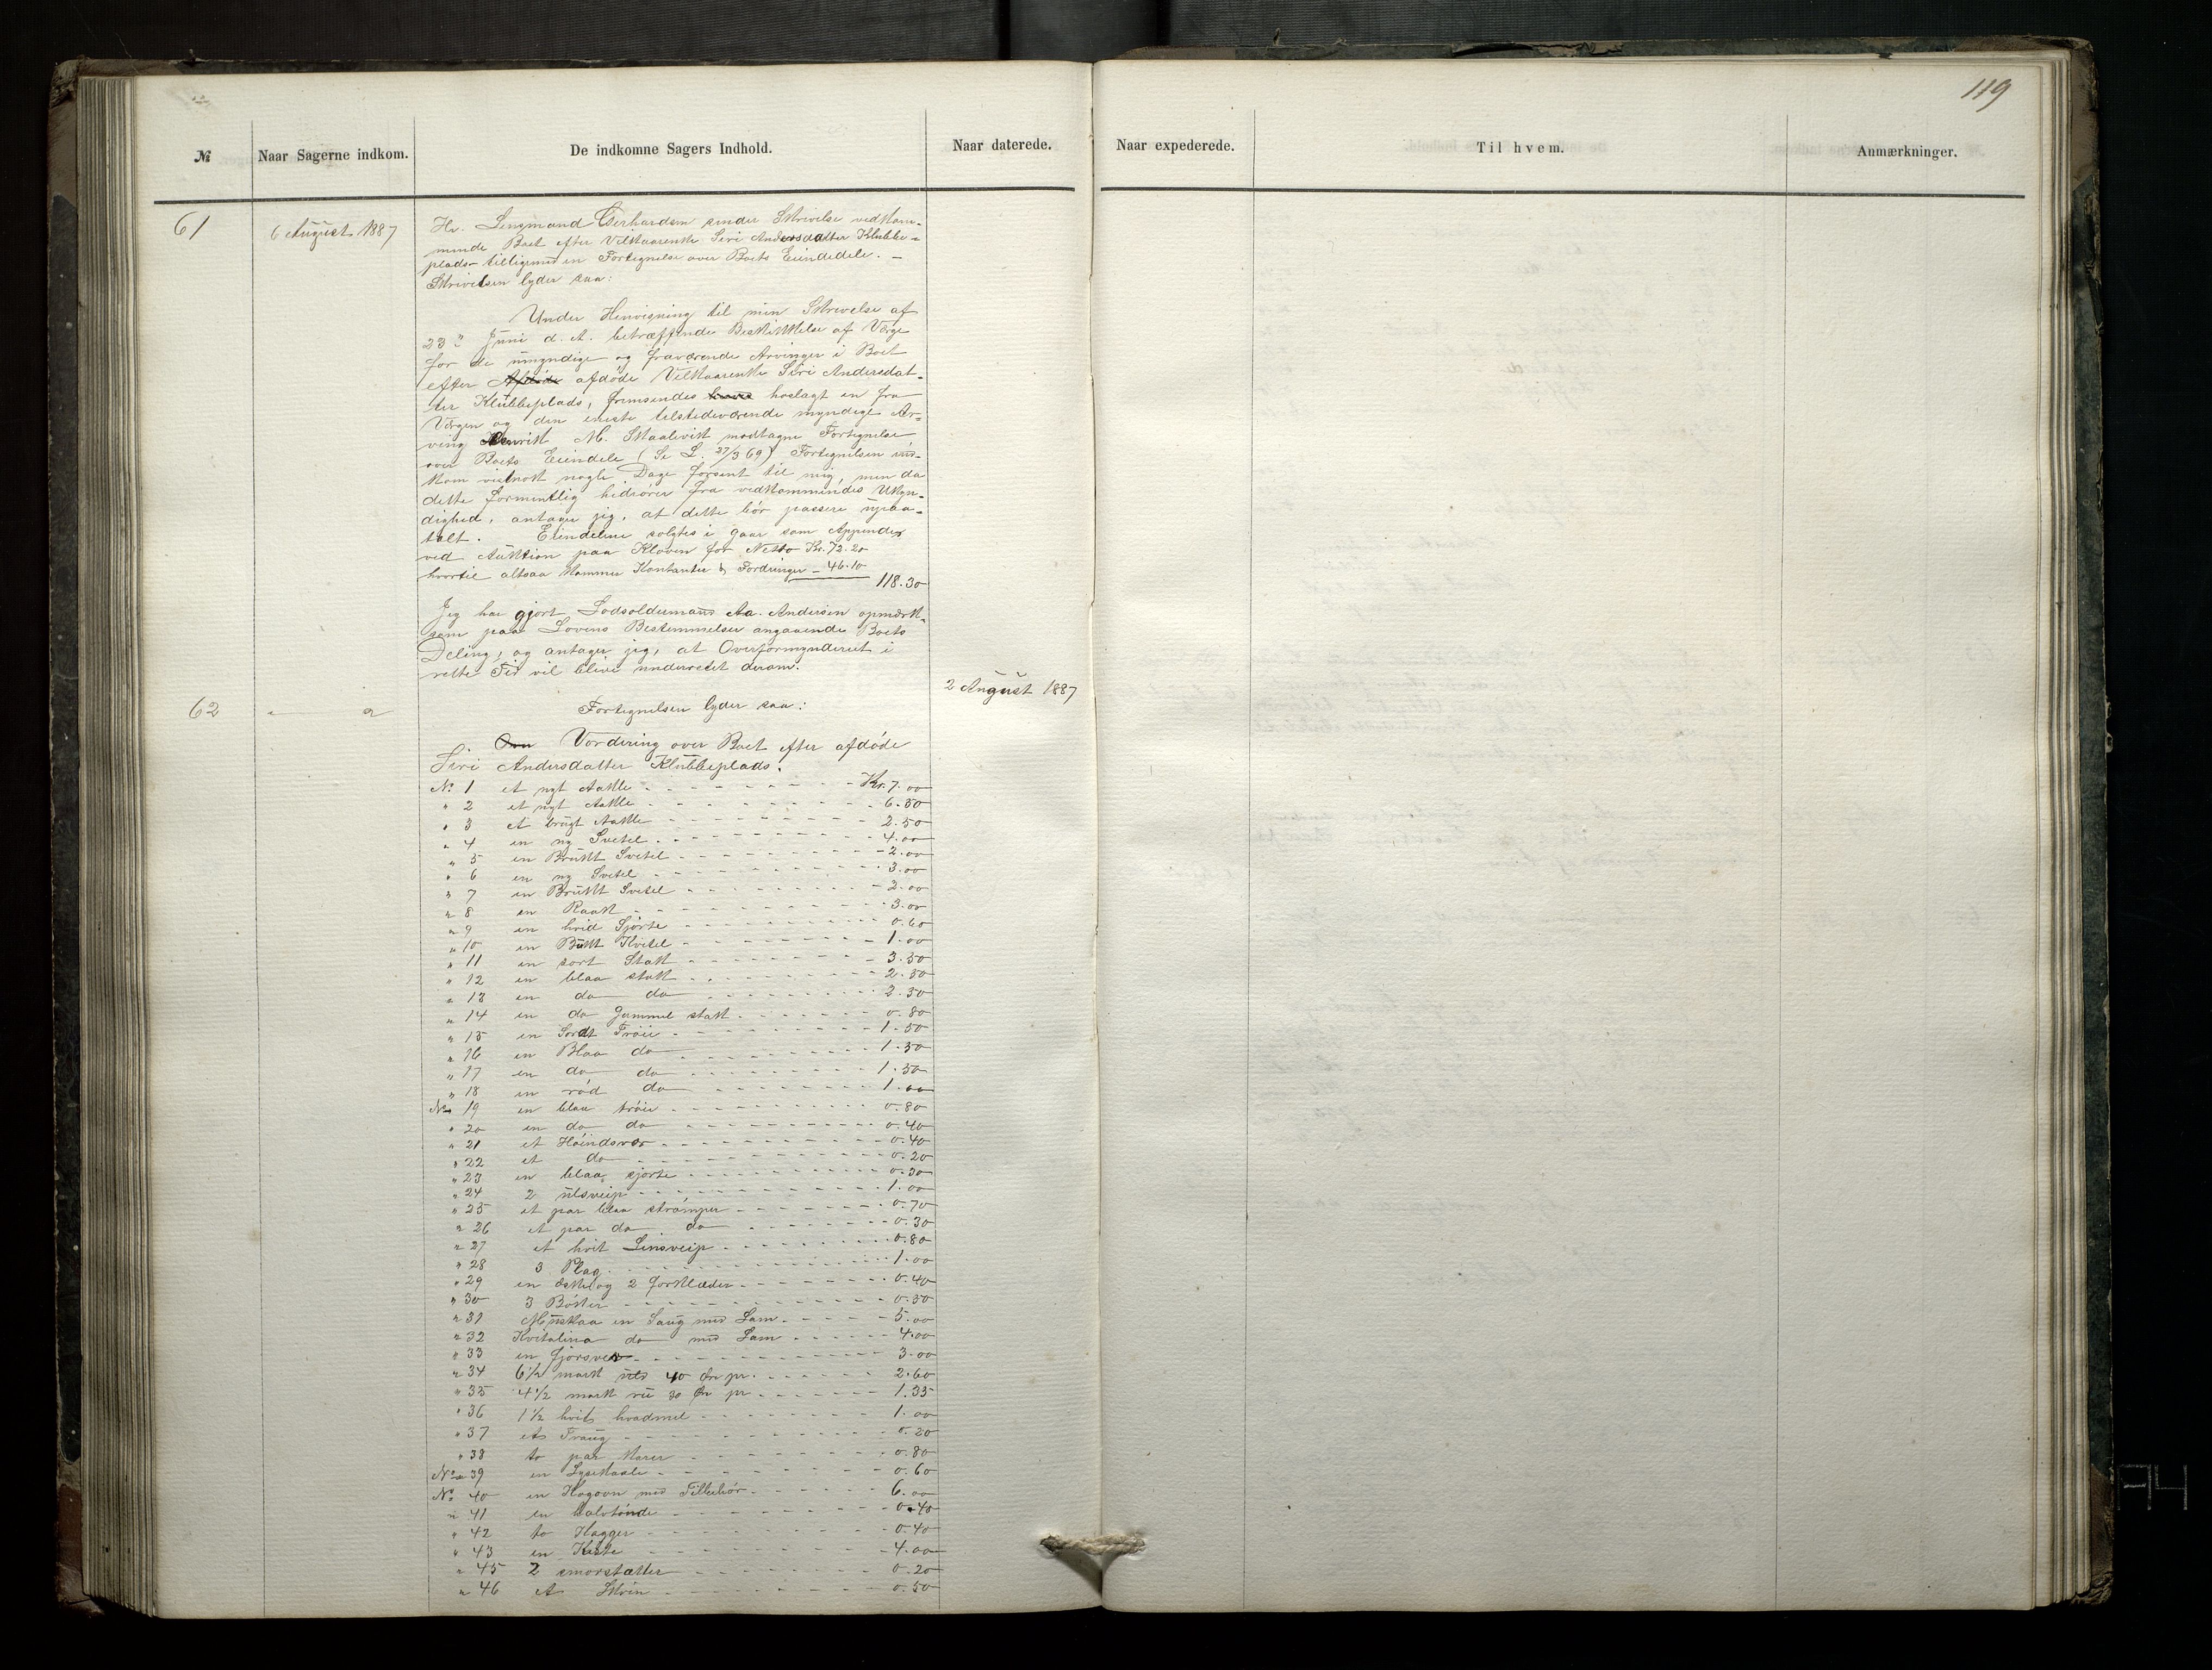 119
№ Naar Sagerne indkom. De indkomne Sagers Indhold. Naar daterede. Naar expederede. Til hvem. Anmærkninger.
61 6 August 1887 Hr. Lensmand Gerhardsen sender Skrivelse vedkom-
mende Boet efter Vilkaarenke Siri Andersdatter Klubbe-
plads tilligemed en Fortegnelse over Boets Eiendele. —
Skrivelsen lyder saa:
Under Henvisning til min Skrivelse af
23 Juni d. A. betræffende Beskikkelse af Værge
for de umyndige og fraværende Arvinger i Boet
efter Afdøde afdøde Vilkaarenke Siri Andersdat-
ter Klubbeplads, fremsendes hoslagt en fra
Værgen og den eneste tilstedeværende myndige Ar-
ving Henrik M. Skaalevik modtagne Fortegnelse
over Boets Eiendele (Se L. 27/3 69) Fortegnelsen ind-
kom vistnok nogle Dage forsent til mig, men da
dette formentlig hidrører fra vedkommendes Ukyn-
dighed, antager jeg, at dette bør passere upaa-
talt. Eiendelene solgtes i gaar som Appendix
ved Auktion paa Kloven for Netto Kr. 72.20
hvortil altsaa kommer Kontanter & Fordringer - 46.10
118.30
Jeg har gjort Lodsoldermand Aa. Andersen opmærk-
som paa Lovens Bestemmelser angaaende Boets
Deling, og antager jeg, at Overformynderiet i
rette Tid vil blive underrettet derom.
2 August 1887
62 " " Fortegnelsen lyder saa:
Vordering over Boet efter afdøde
Siri Andersdatter Klubbeplads.
No 1 et nyt Aakle Kr. 7.00
" 2 et nyt Aakle 6.50
" 3 et brugt Aakle 2.50
" 4 en ny Svetel 4.00
" 5 en Brukt Svetel 2.00
" 6 en ny Svetel 3.00
" 7 en Brukt Svetel 2.00
" 8 en Raak 3.00
" 9 en hvid Sjorte 0.60
" 10 en Bukt Kvitel 1.00
" 11 en sort Stak 3.50
" 12 en blaa stak 2.50
" 13 en do do 2.50
" 14 en do gammel stak 0.80
" 15 en Sordt Trøie 1.50
" 16 en Blaa do 1.50
" 17 en do do 1.50
" 18 en rød do 1.00
No 19 en blaa trøie 0.80
" 20 en do do 0.40
" 21 et Høindsver 0.40
" 22 et do 0.20
" 23 en blaa sjorte 0.30
" 24 2 ulsveip 1.00
" 25 et par blaa strømper 0.70
" 26 et par do do 0.30
" 27 et hvit Linsveip 0.80
" 28 3 Plag 1.00
" 29 en æske og 2 forklæder 0.40
" 30 3 Bøtter 0.50
" 31 Muskaa en Saug med Lam 5.00
" 32 Kvitalina do med Lam 4.00
" 33 en fjorsver 3.00
" 34 6½ mark uld 40 Øre pr. 2.60
" 35 4½ mark ru 30 Øre pr 1.35
" 36 1½ hvit hvadmel 1.00
" 37 ets Traug 0.20
" 38 to par Karer 0.80
No 39 en Lysekaale 0.60
No 40 en Kogovn med Tilbehør 6.00
" 41 en halvtønde 0.40
" 42 to Kagger 0.40
" 43 en Kiste 4.00
" 45 2 smørstætter 0.20
" 46 et Skrin 0.50